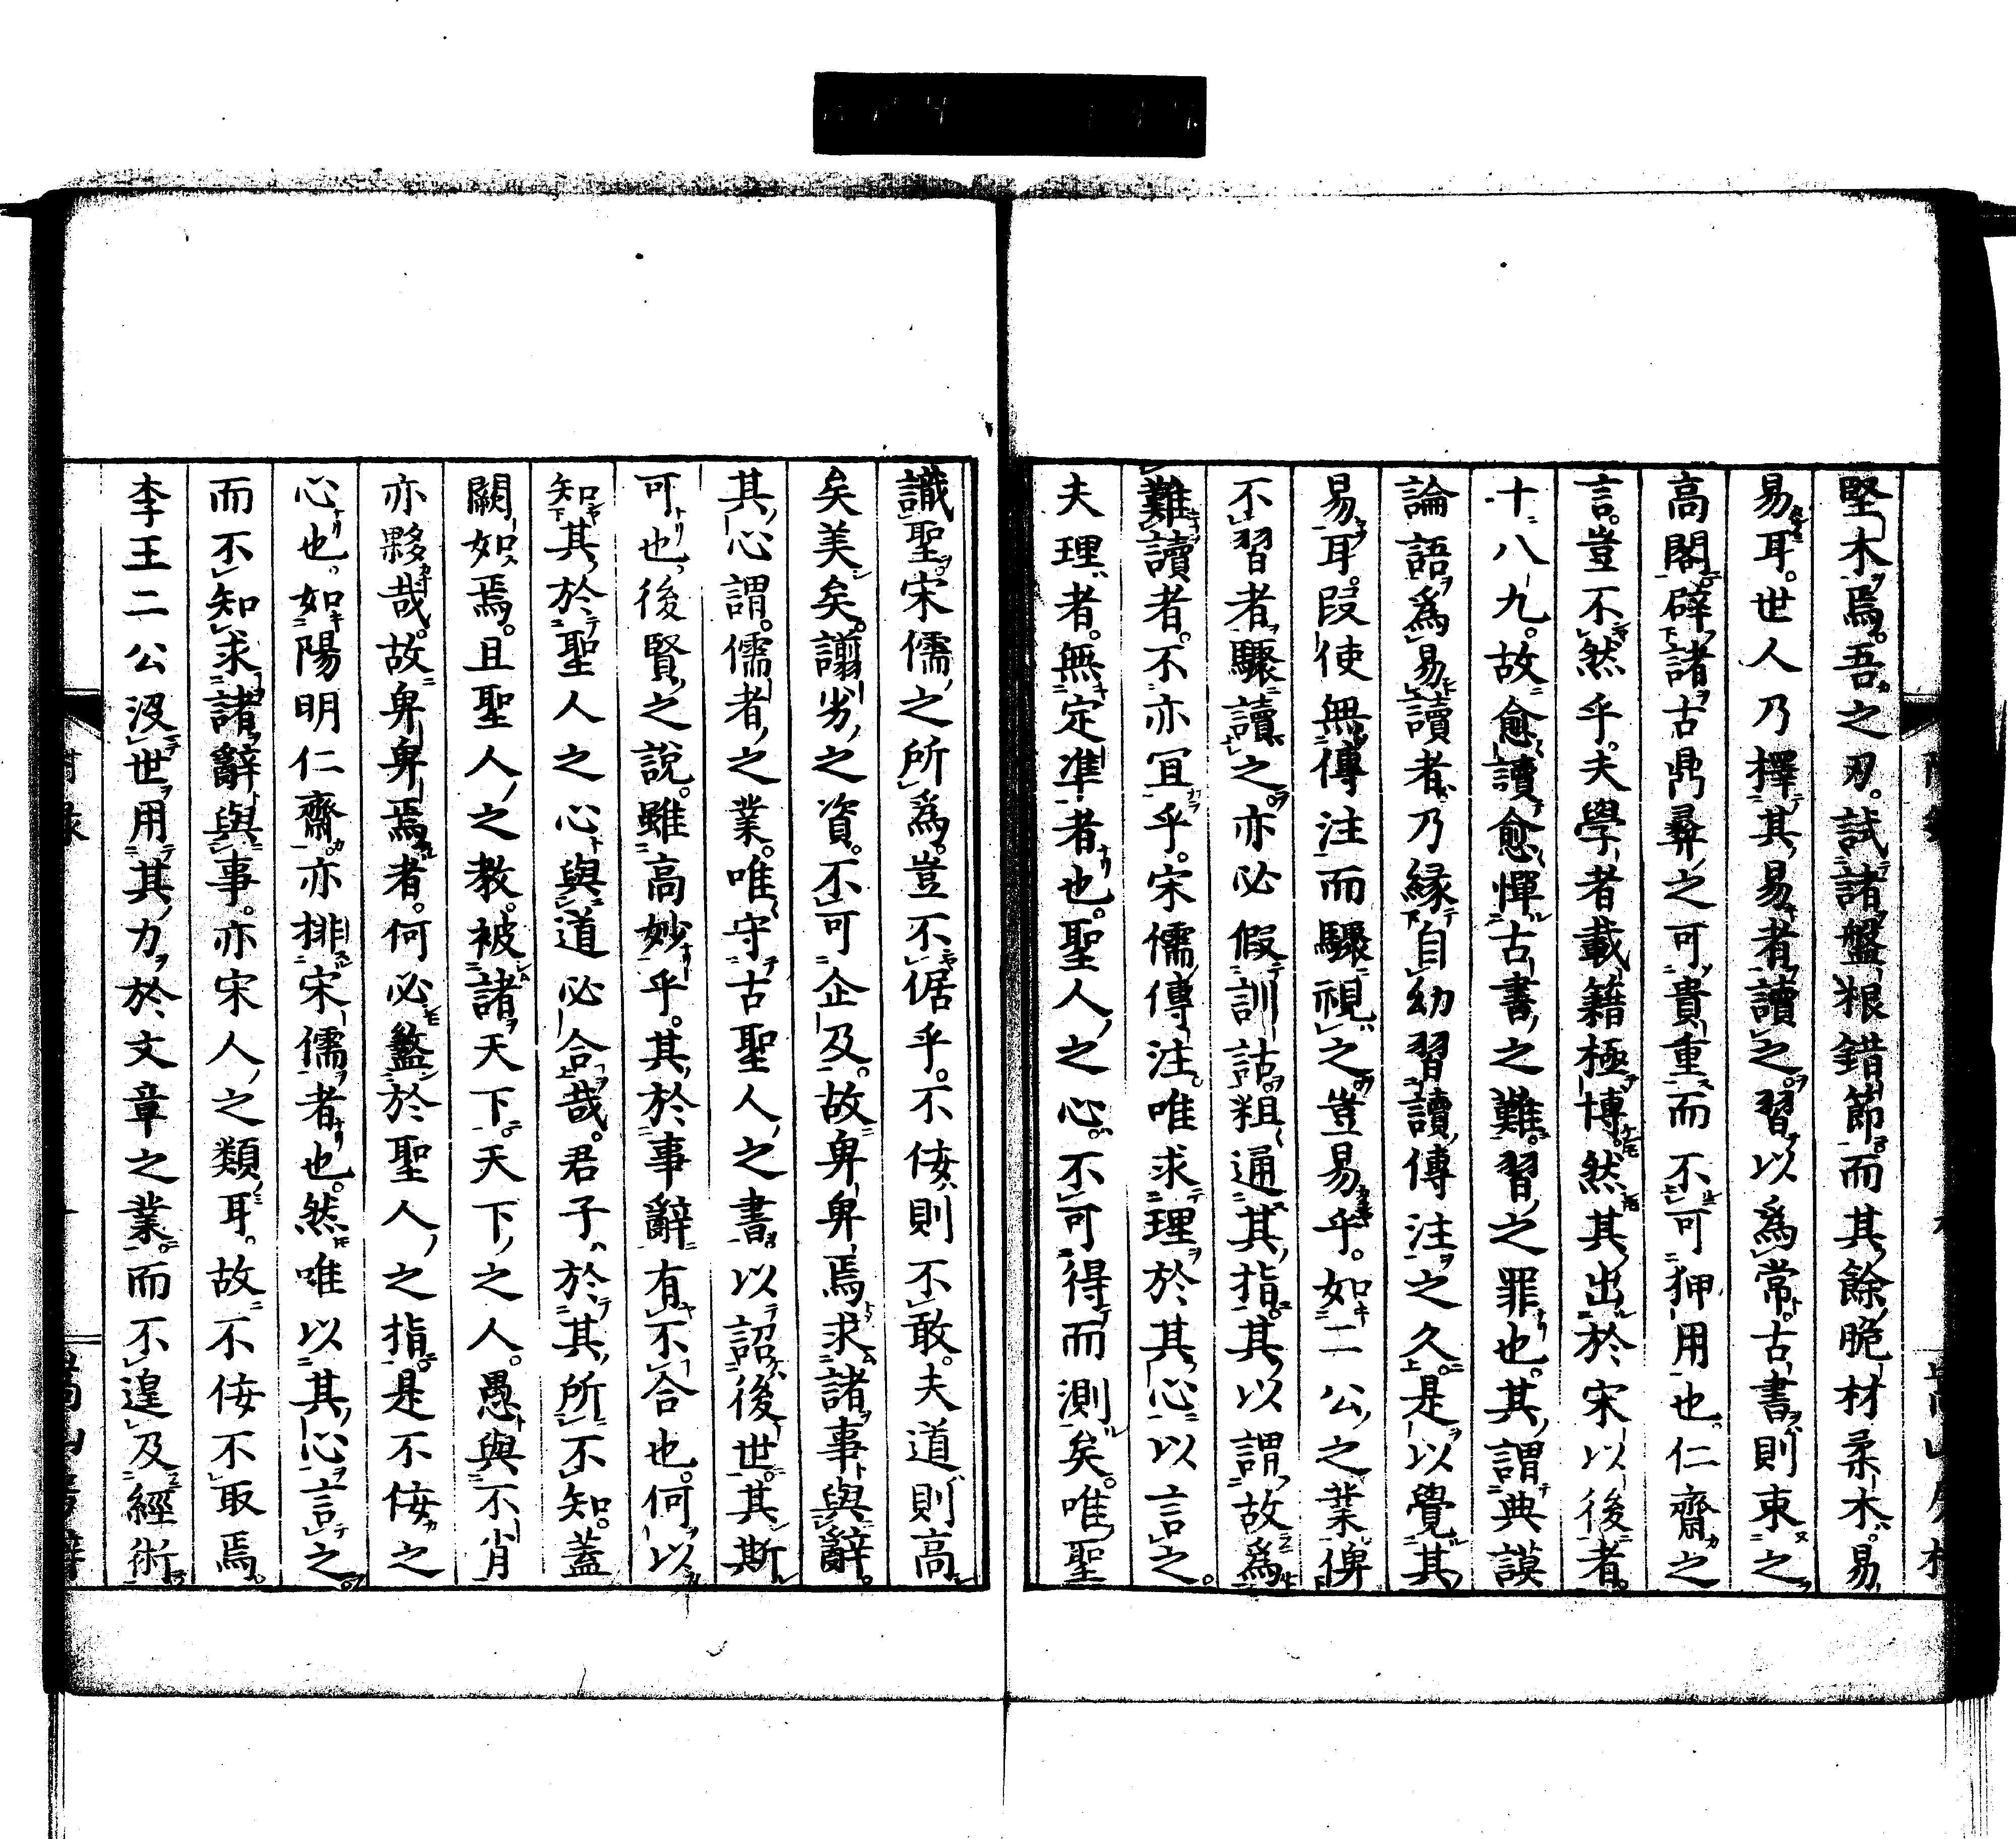 堅木焉。吾之刃。試諸盤根錯節。而其餘脆材柔木。易
易耳。世人乃擇其易者。讀之習以爲常。古書則束之
高閣。辟諸古鼎彞之可貴重。而不可狎用也。仁齋之
言。豈不然乎。夫學者載籍極博。然其出於宋以後者。
十八九。故愈讀愈憚古書之難。習之罪也。其謂典謨
論語爲易讀者。乃緣自幼習讀傳注之久。是以覺其
易耳。叚使無傳注而驟視之。豈易乎。如二公之業。俾
不習者驟讀之。亦必假訓詁。粗通其指。其以謂故爲
難讀者。不亦宜乎。宋儒傳注。唯求理於其心以言之。
夫理者。無定準者也。聖人之心。不可得而測矣。唯聖
識聖。宋儒之所爲。豈不倨乎。不侫則不敢。夫道則高
矣美矣。謭劣之資。不可企及。故卑卑焉求諸事與辭。
其心謂。儒者之業。唯守古聖人之書。以詔後世。其斯
可也。後賢之說。雖高妙乎。其於事辭有不合也。何以
知其於聖人之心與道必合哉。君子於其所不知。蓋
闕如焉。且聖人之教。被諸天下。天下之人。愚與不肖
亦夥哉。故卑卑焉者。何必盭於聖人之指。是不侫之
心也。如陽明仁齋。亦排宋儒者也。然唯以其心言之
而不知求諸辭與事。亦宋人之類耳。故不侫不取焉。
李王二公沒世用其力於文章之業。而不遑及經術